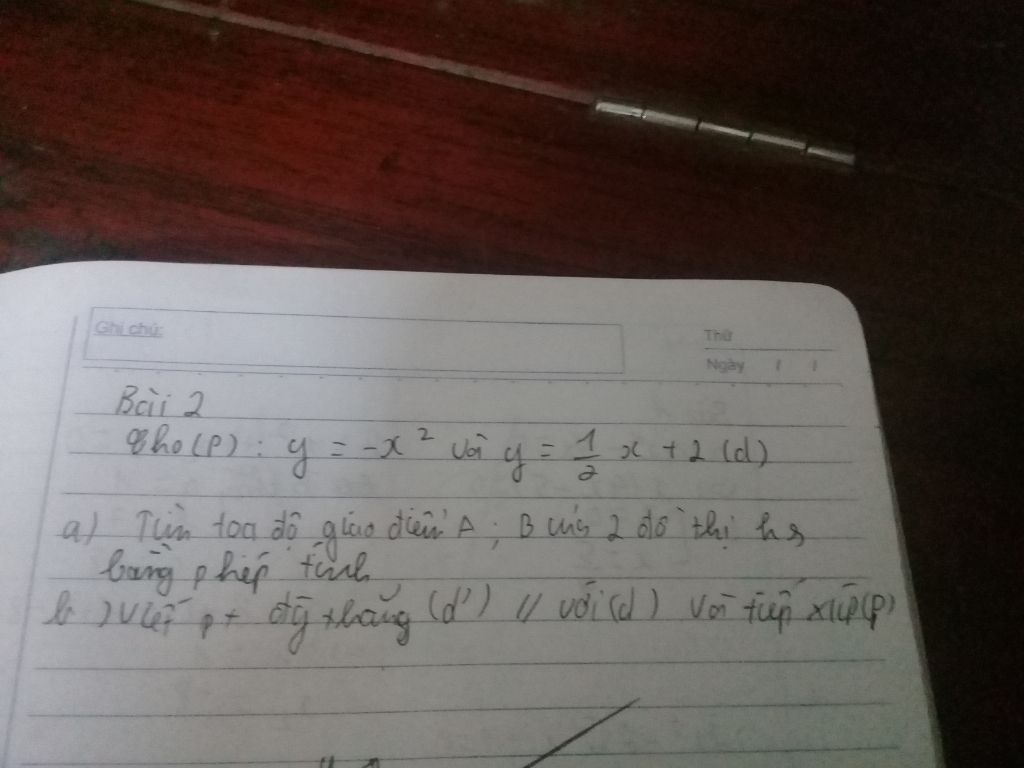 Ghi chú:
Thứ
Ngày / /
Bài 2
Cho (P) : y = -x² và y = 1/2 x + 2 (d)
a) Tìm toạ độ giao điểm A ; B của 2 đồ thị hs
bằng phép tính
b) Viết pt đg thẳng (d') // với (d) và tiếp xúc (P)